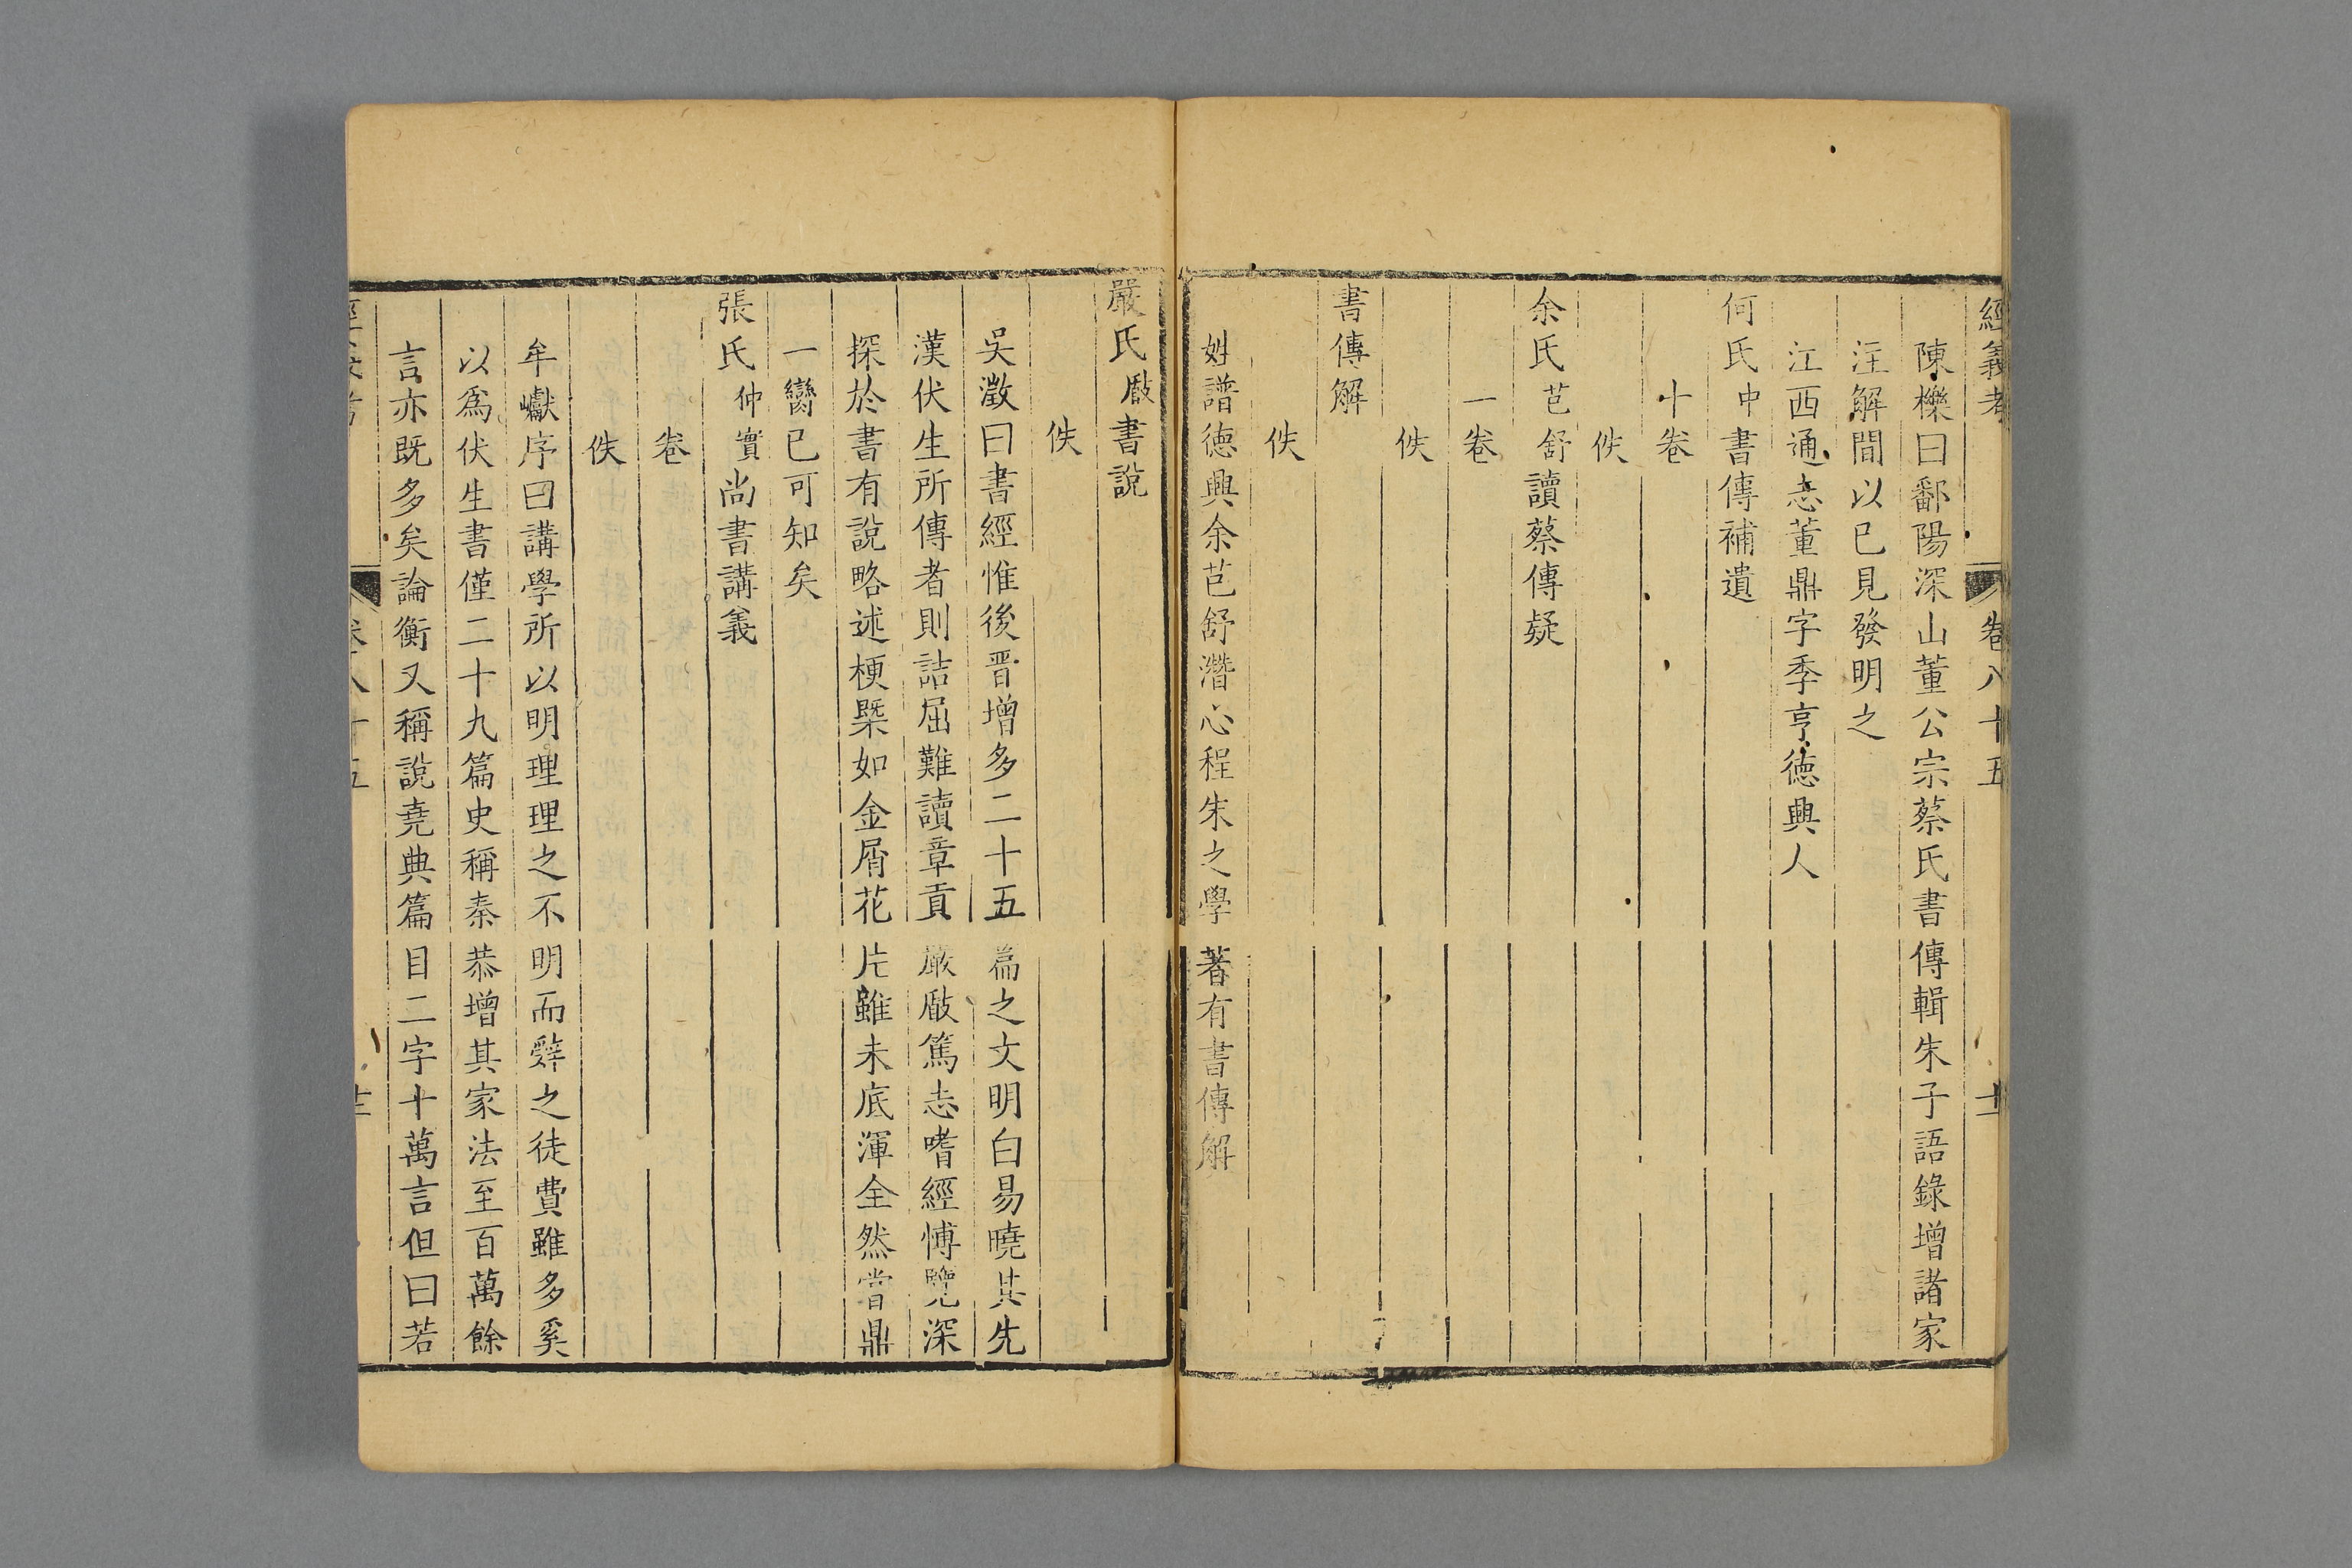 經義考　卷八十五
陳櫟曰鄱陽深山董公宗蔡氏書傳輯朱子語錄增諸家
注解間以已見發明之
江西通志董鼎字季亨德興人
何氏中書傳補遺
十卷
佚
余氏芑舒讀蔡傳疑
一卷
佚
書傳解
佚
姓譜德興余芑舒潛心程朱之學著有書傳解
嚴氏㪚書說
佚
吳澂曰書經惟後晉增多二十五篇之文明白易曉其先
漢伏生所傳者則詰屈難讀章貢嚴㪚篤志嗜經博覽深
探於書有說略述梗槩如金屑花片雖未底渾全然嘗鼎
一臠已可知矣
張氏仲實尚書講義
卷
佚
牟巘序曰講學所以明理理之不明而辭之徒費雖多奚
以爲伏生書僅二十九篇史稱秦恭增其家法至百萬餘
言亦既多矣論衡又稱說堯典篇目二字十萬言但曰若